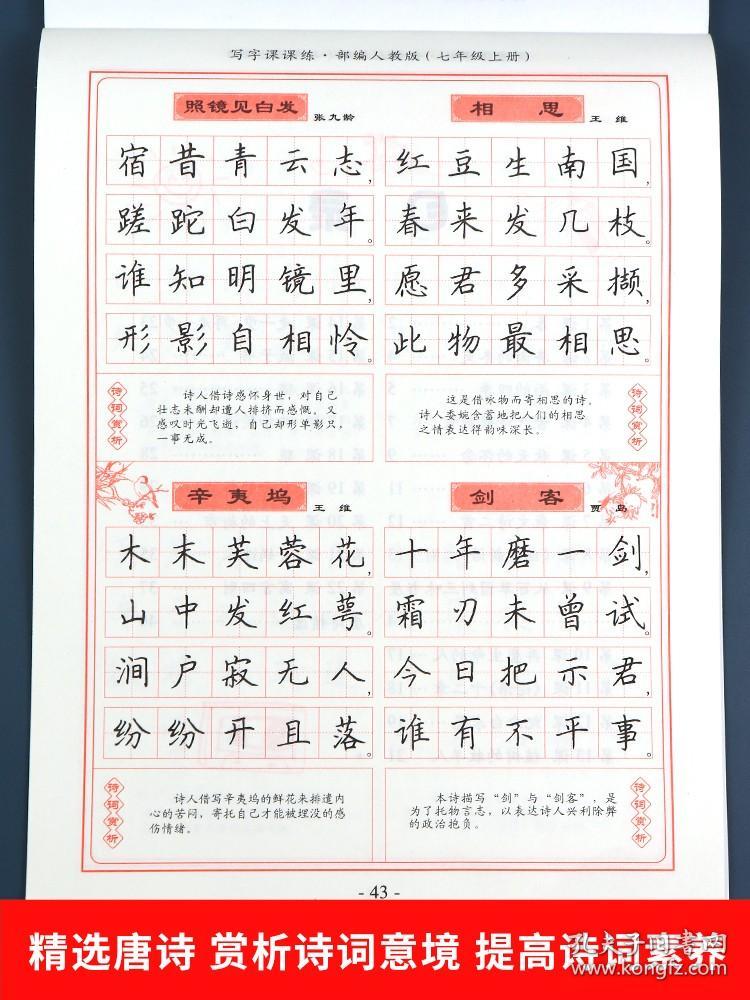 写字课课练·部编人教版(七年级上册)
照镜见白发
张九龄
宿昔青云志，
蹉跎白发年。
谁知明镜里，
形影自相怜。
诗词赏析
诗人借诗感怀身世，对自己
壮志未酬却遭人排挤而感慨。又
感叹时光飞逝，自己却形单影只，
一事无成。
相思
王维
红豆生南国，
春来发几枝。
愿君多采撷，
此物最相思。
这是借咏物而寄相思的诗。
诗人委婉含蓄地把人们的相思
之情表达得韵味深长。
诗词赏析
辛夷坞
王维
木末芙蓉花，
山中发红萼。
涧户寂无人，
纷纷开且落。
诗词赏析
诗人借写辛夷坞的鲜花来排遣内
心的苦闷，寄托自己才能被埋没的感
伤情绪。
剑客
贾岛
十年磨一剑，
霜刃未曾试。
今日把示君，
谁有不平事。
本诗描写“剑”与“剑客”，是
为了托物言志，以表达诗人兴利除弊
的政治抱负。
诗词赏析
- 43 -
精选唐诗 赏析诗词意境 提高诗词素养
孔夫子旧书网
kongfz.com